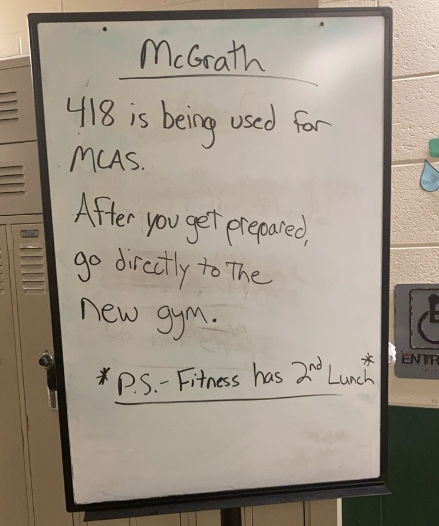 McGrath
418 is being used for
MCAS.
After you get prepared,
go directly to the
new gym.
* P.S. - Fitness has 2nd Lunch *
ENTR